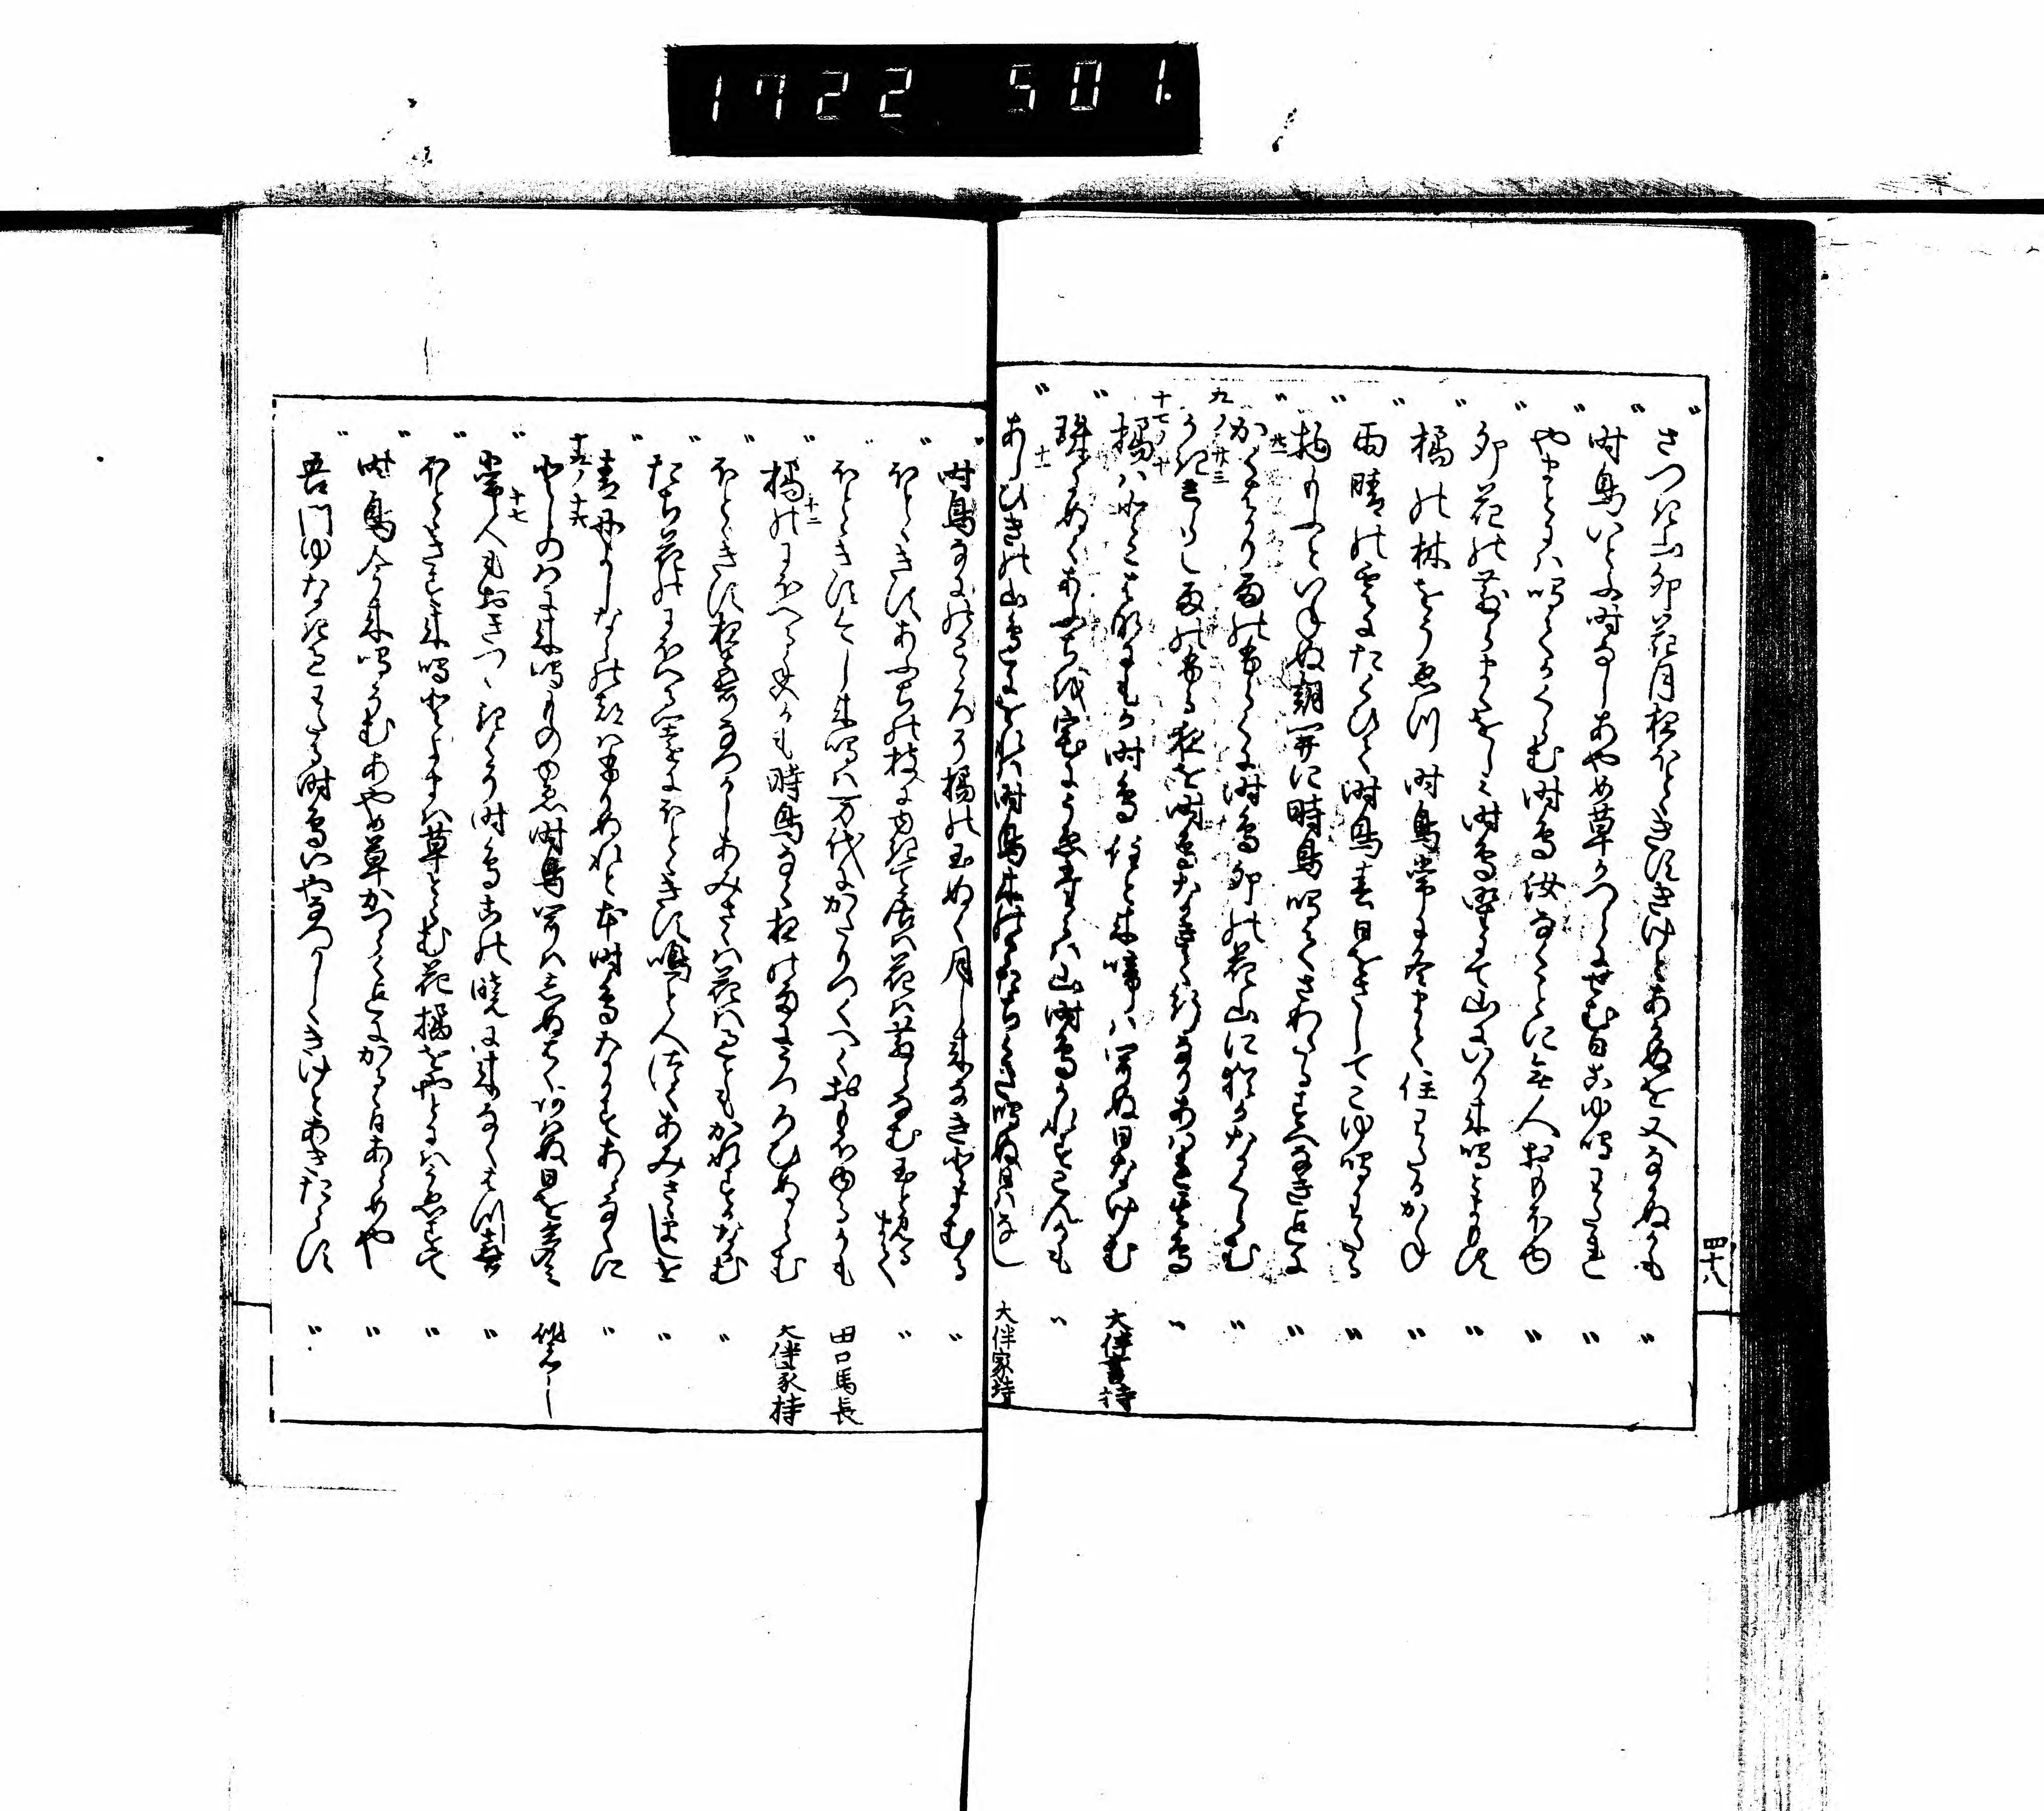 1722 501.
四十八
さつき山卯花月夜ほとゝきすきけとあかぬを又なかぬかも 〃
時鳥いとふ時なしあやめ草かつらにせむ日こゆ鳴わたれ 〃
やまとには鳴てかくらむ時鳥汝なくことに無人おもほゆ 〃
卯花の散まくをしみ時鳥野に出山に入り来鳴とよもす 〃
橘の林をうゑん時鳥常に冬まて住わたるかね 〃
雨晴の雲にたくひて時鳥春日をさしてこゆ鳴わたる 〃
物もふといねぬ朝開に時鳥鳴てさわたるすへなき迄に 〃
かくはかり雨のふらくに時鳥卯の花山に猶かなくらむ 〃
九ノ廿三 きらし雨のふる夜を時鳥なきて行なりあはれ其鳥 〃
十七ノ十 橘はとこ花にもか時鳥住と来鳴は聞ぬ日なけむ 大伴書持
珠にぬくあふちを宅にうゑたらは山時鳥かれすこんかも 〃
十一 あしひきの山辺にをれは時鳥木のまたちくき鳴ぬ日はなし 大伴家持
時鳥なにのこゝろそ橘の玉ぬく月し来なきとよむる 〃
ほとゝきすあふちの枝にゆきて居は花は散なむ玉と見るまて 〃
ほとゝきす今し来鳴は万代にかたりつくへくおもほゆるかも 田口馬長
十二 橘のにほへる香かも時鳥なく夜の雨にうつろひぬらむ 大伴家持
ほとゝきす夜音なつかしあみさゝは花はすくともかれすかなかむ 〃
たち花のにほへる苑にほとゝきす鳴と人つくあみさゝましを 〃
青丹よしならの都はふりぬれと本時鳥なかすあらなくに 〃
十九ノ十六 としのはに来鳴ものゆゑ時鳥聞はしぬはくあはぬ日を多み
十七 常人もおきつゝきくそ時鳥此の暁に来なくはつ声 〃
ほとゝきす来鳴とよまは草とらむ花橘をやとにはうゑすて 〃
時鳥今来鳴そむあやめ草かつらく迄にかるゝ日あらめや 〃
吾門ゆなきすきわたる時鳥いやなつかしくきけとあきたらす 〃